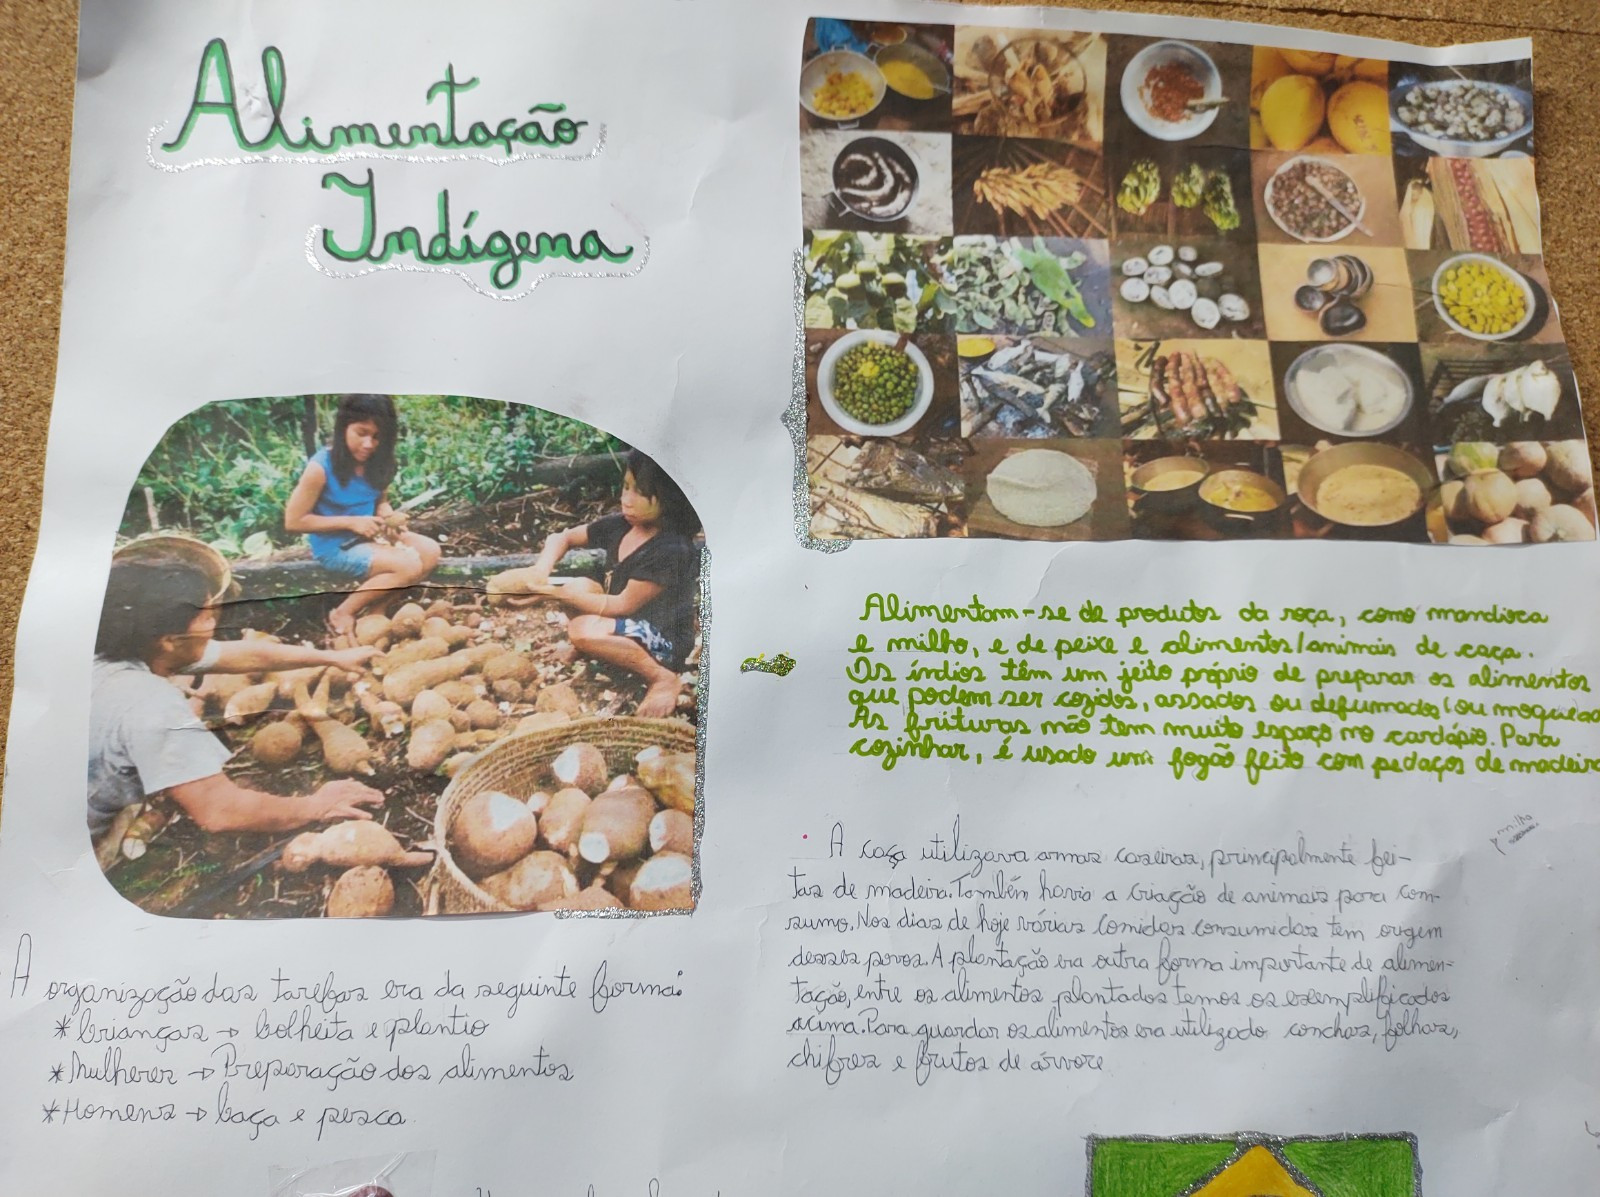 Alimentação
Indígena
Alimentam-se de produtos da roça, como mandioca
e milho, e de peixe e alimentos/animais de caça.
Os índios têm um jeito próprio de preparar os alimentos
que podem ser cozidos, assados ou defumados (ou moquea
As frituras não tem muito espaço no cardápio. Para
cozinhar, é usado um fogão feito com pedaços de madeira
milho
A caça utilizava armas caseiras, principalmente fei-
tas de madeira. Também havia a criação de animais para con-
sumo. Nos dias de hoje várias comidas consumidas tem origem
desses povos. A plantação era outra forma importante de alimen-
tação, entre os alimentos plantados temos os exemplificados
acima. Para guardar os alimentos era utilizado conchas, folhas,
chifres e frutos de árvore
A organização das tarefas era da seguinte forma:
* Crianças → Colheita e plantio
* Mulheres → Preparação dos alimentos
* Homens → Caça e pesca.